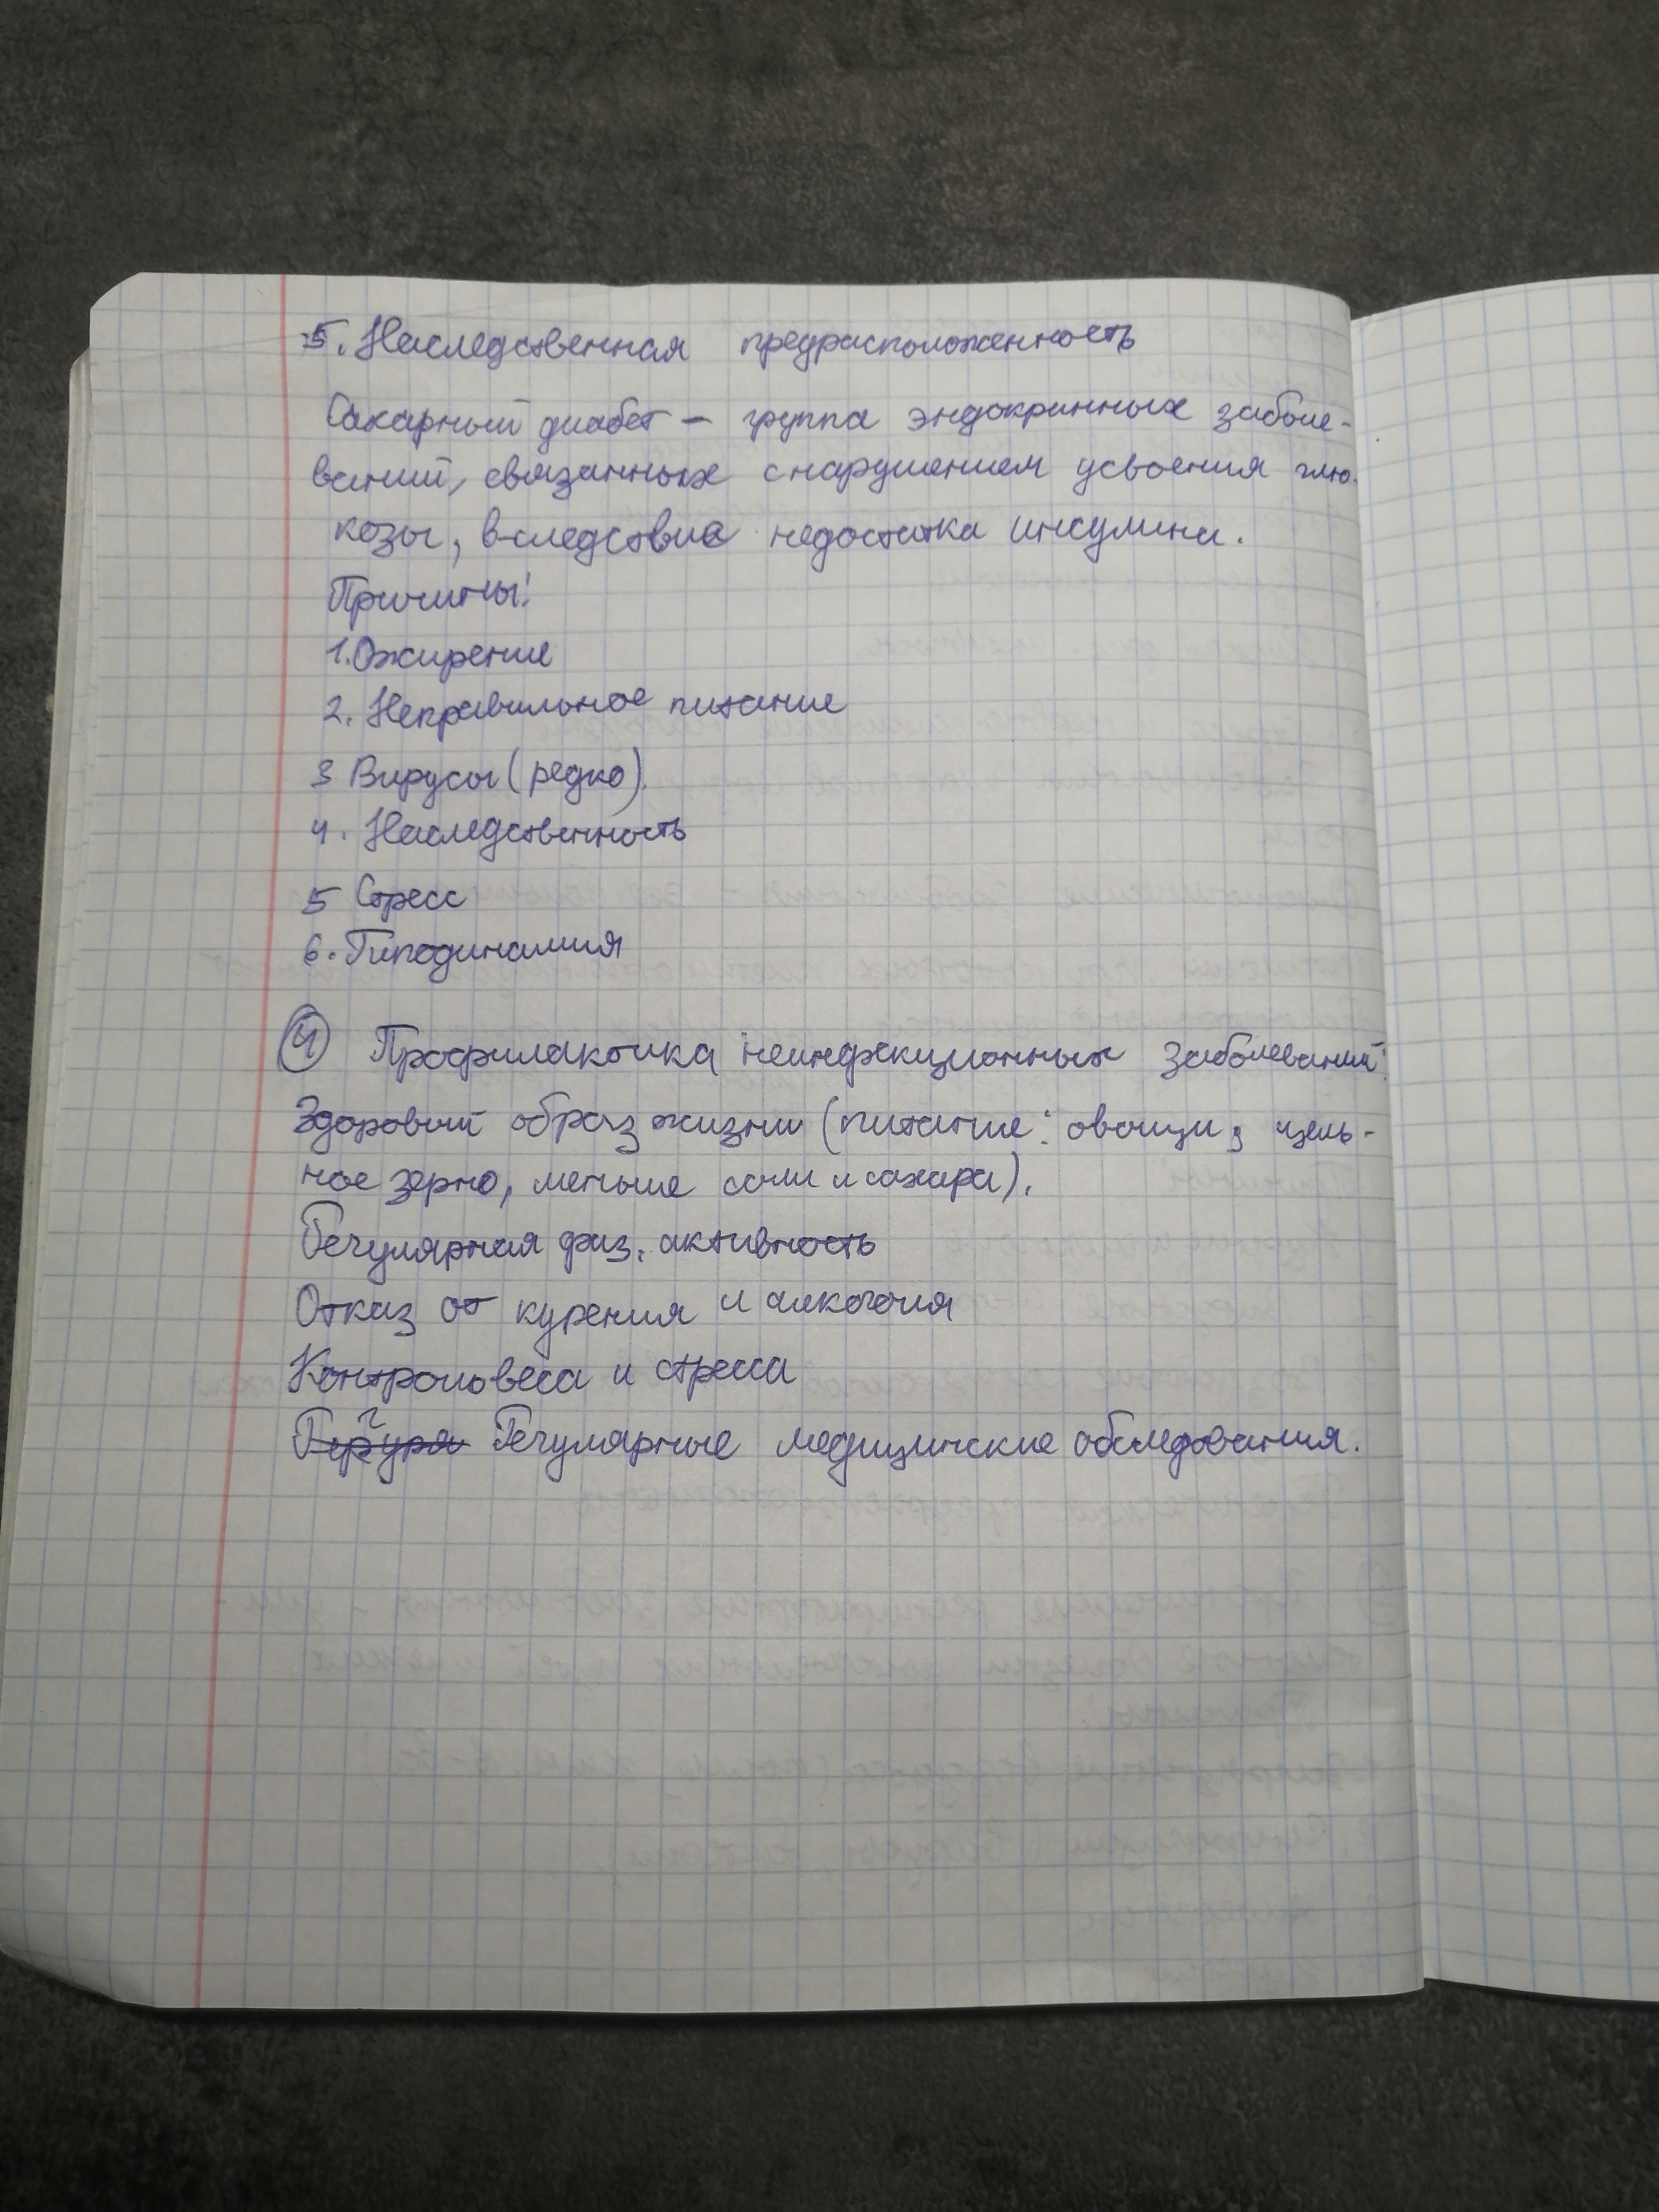 5. Наследственная предрасположенность
Сахарный диабет – группа эндокринных заболе-
ваний, связанных с нарушением усвоения глю-
козы, вследствие недостатка инсулина.
Причины:
1. Ожирение
2. Неправильное питание
3 Вирусы (редко).
4. Наследственность
5 Стресс
6. Гиподинамия
4 Профилактика неинфекционных заболеваний:
Здоровый образ жизни (питание: овощи, цель-
ное зерно, меньше соли и сахара).
Регулярная физ. активность
Отказ от курения и алкоголя
Контроль веса и стресса
Регулярные медицинские обследования.